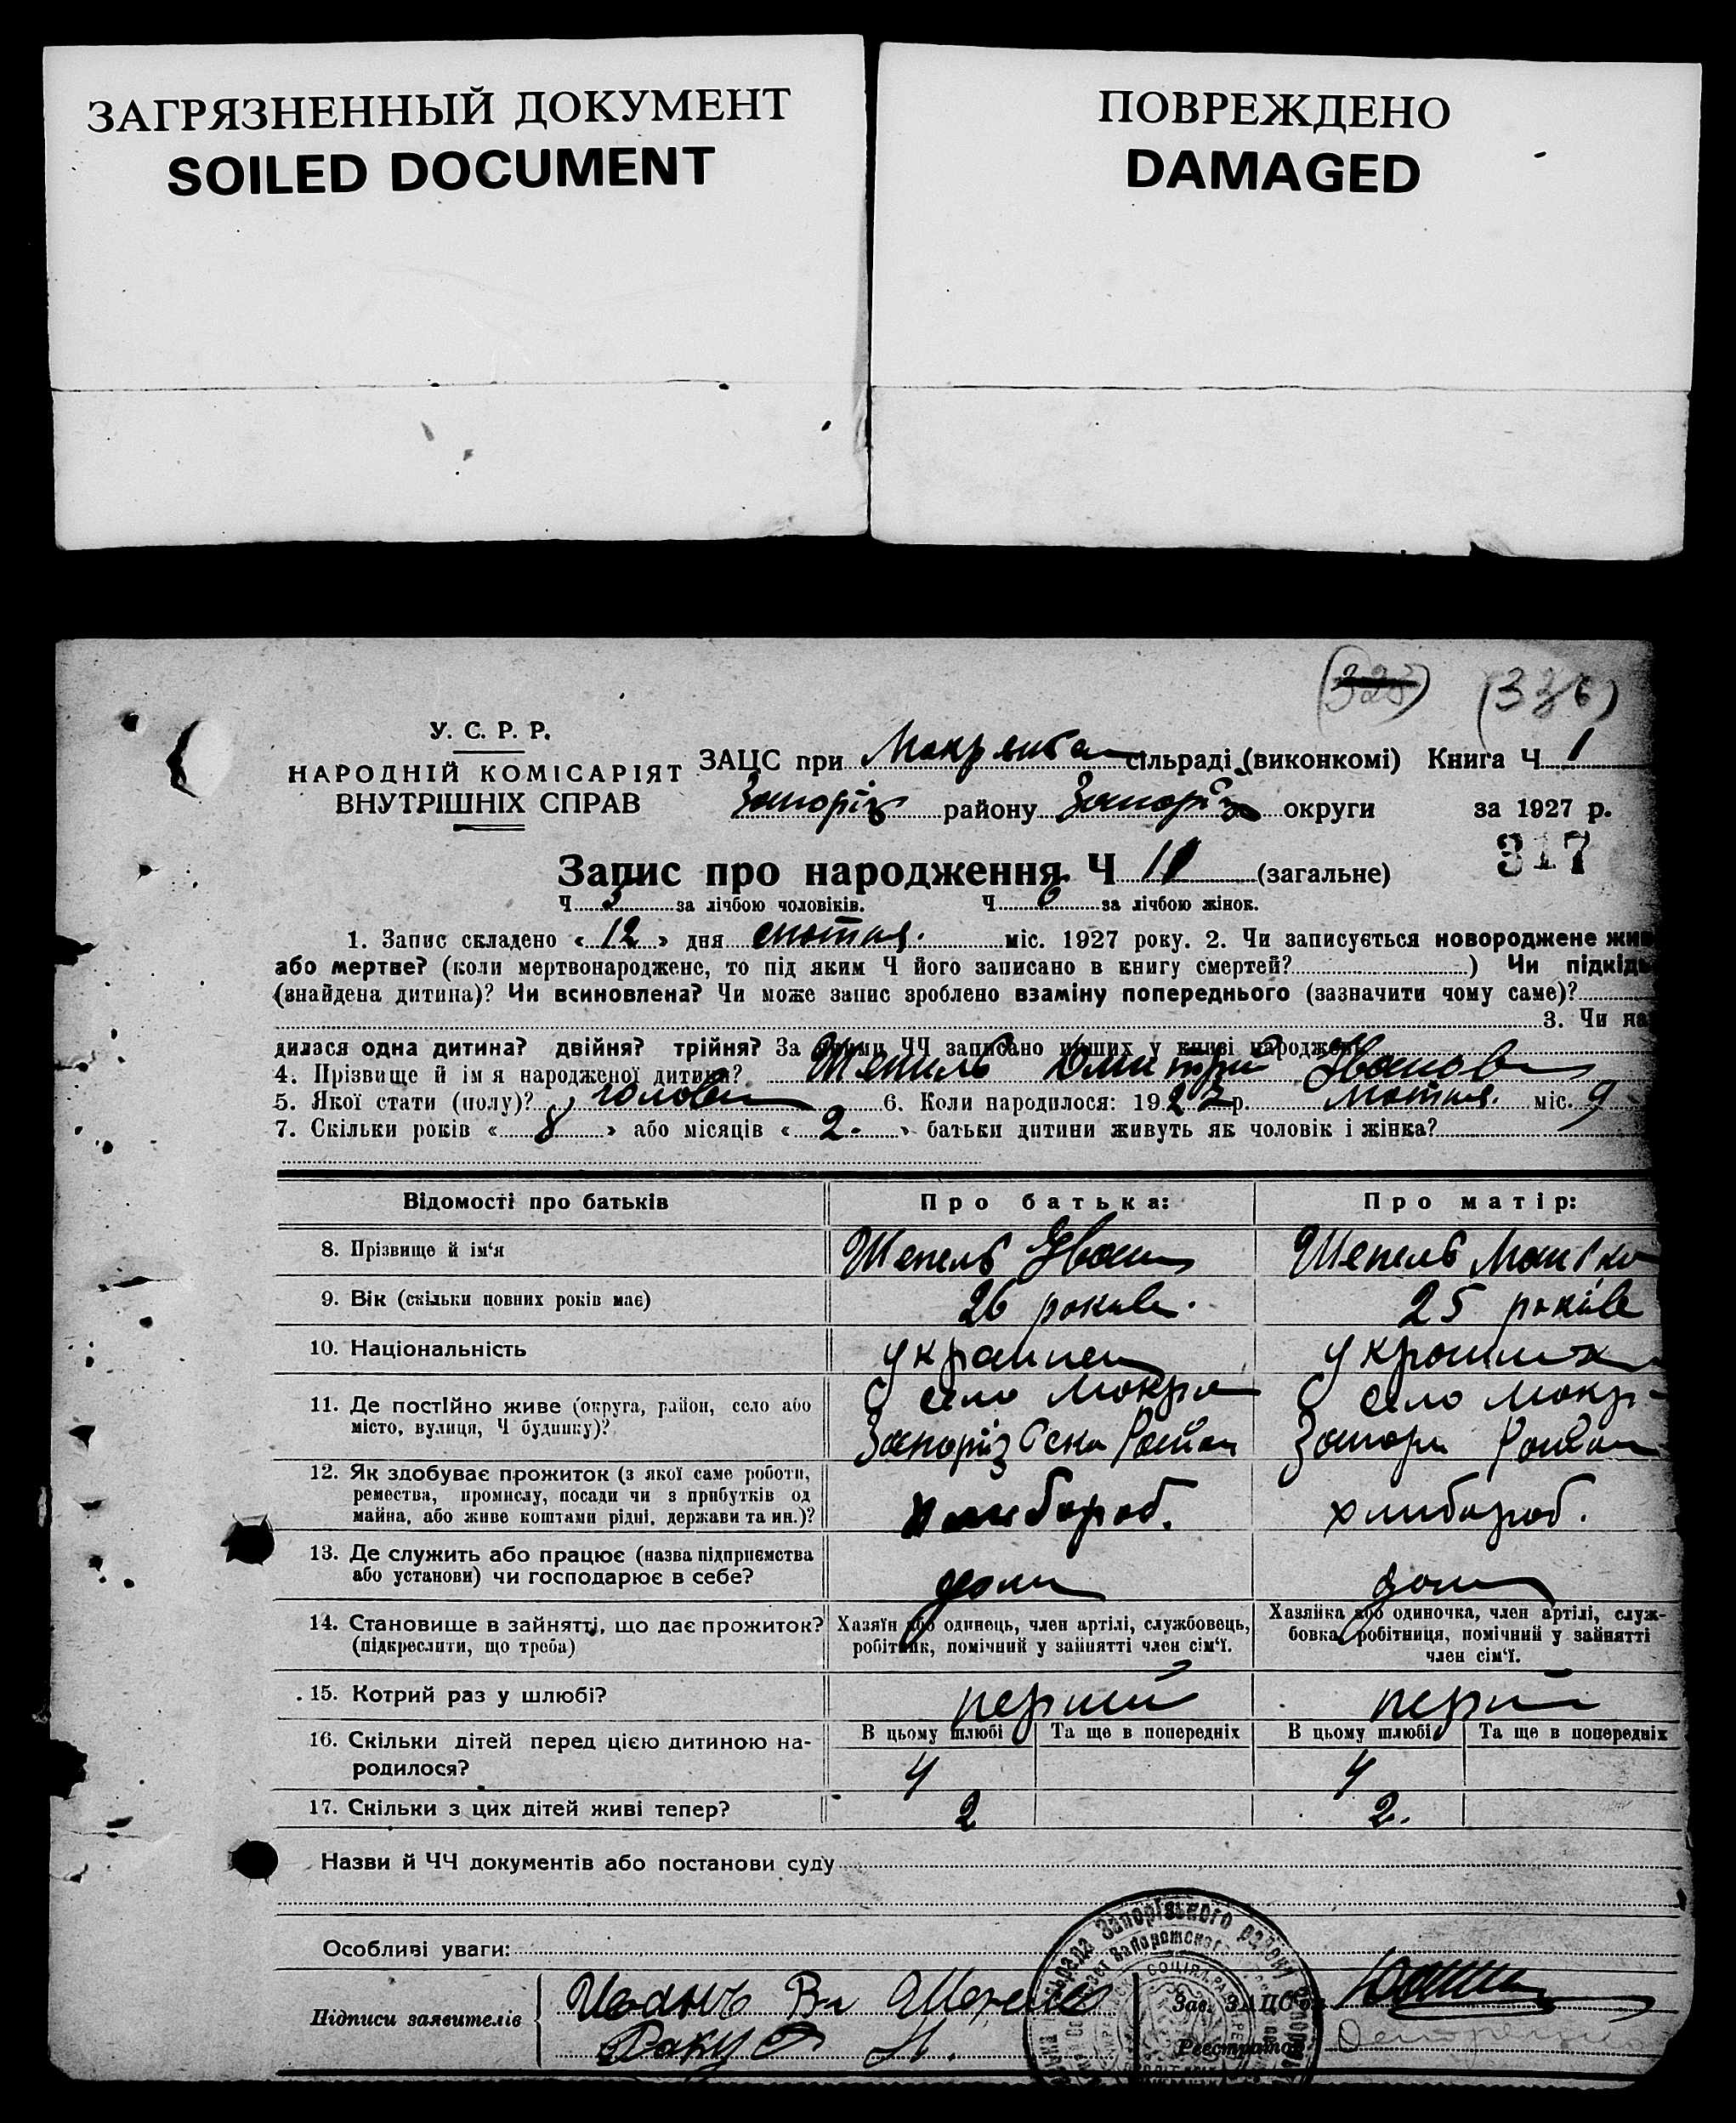 ЗАГРЯЗНЕННЫЙ ДОКУМЕНТ
SOILED DOCUMENT
ПОВРЕЖДЕНО
DAMAGED
(325) (336)
У. С. Р. Р.
НАРОДНІЙ КОМІСАРІЯТ
ВНУТРІШНІХ СПРАВ
ЗАЦС при сільраді (виконкомі) Книга Ч 1
Запоріз району Запоріз округи за 1927 р.
317
Запис про народження Ч 11 (загальне)
Ч 5 за лічбою чоловіків. Ч 6 за лічбою жінок.
1. Запис складено « 12 » дня міс. 1927 року. 2. Чи записується новороджене жив
або мертве? (коли мертвонароджене, то під яким Ч його записано в книгу смертей? ) Чи підкід
(знайдена дитина)? Чи всиновлена? Чи може запис зроблено взаміну попереднього (зазначити чому саме)?
3. Чи на
дилася одна дитина? двійня? трійня? За якими ЧЧ записано инших у книзі народжень
4. Прізвище й ім я народженої дитини? Шепель Дмитрий Иванов
5. Якої стати (полу)? 6. Коли народилося: 1927 р. Лютня. міс. 9
7. Скільки років « 8 » або місяців « 2. » батьки дитини живуть як чоловік і жінка?
Відомості про батьків
Про батька:
Про матір:
8. Прізвище й ім'я
Шепель Иван
Шепель
9. Вік (скільки повних років має)
26 роківе.
25 роківе
10. Національність
украинец
11. Де постійно живе (округа, район, село або
місто, вулиця, Ч будинку)?
село Мокра
село Мокр
Район
Район
12. Як здобуває прожиток (з якої саме роботи,
ремества, промислу, посади чи з прибутків од
майна, або живе коштами рідні, держави та ин.)?
хлибороб.
хлибороб.
13. Де служить або працює (назва підприємства
або установи) чи господарює в себе?
дома
дома
14. Становище в зайнятті, що дає прожиток?
(підкреслити, що треба)
Хазяїн або одинець, член артілі, службовець,
робітник, помічний у зайнятті член сім'ї.
Хазяйка або одиночка, член артілі, служ-
бовка, робітниця, помічний у зайнятті
член сім'ї.
15. Котрий раз у шлюбі?
перший
перший
16. Скільки дітей перед цією дитиною на-
родилося?
В цьому шлюбі Та ще в попередніх
В цьому шлюбі Та ще в попередніх
4
4
17. Скільки з цих дітей живі тепер?
2
2.
Назви й ЧЧ документів або постанови суду
Особливі уваги:
Підписи заявителів
Зав. ЗАЦС
Реєстратор
Запорізького району